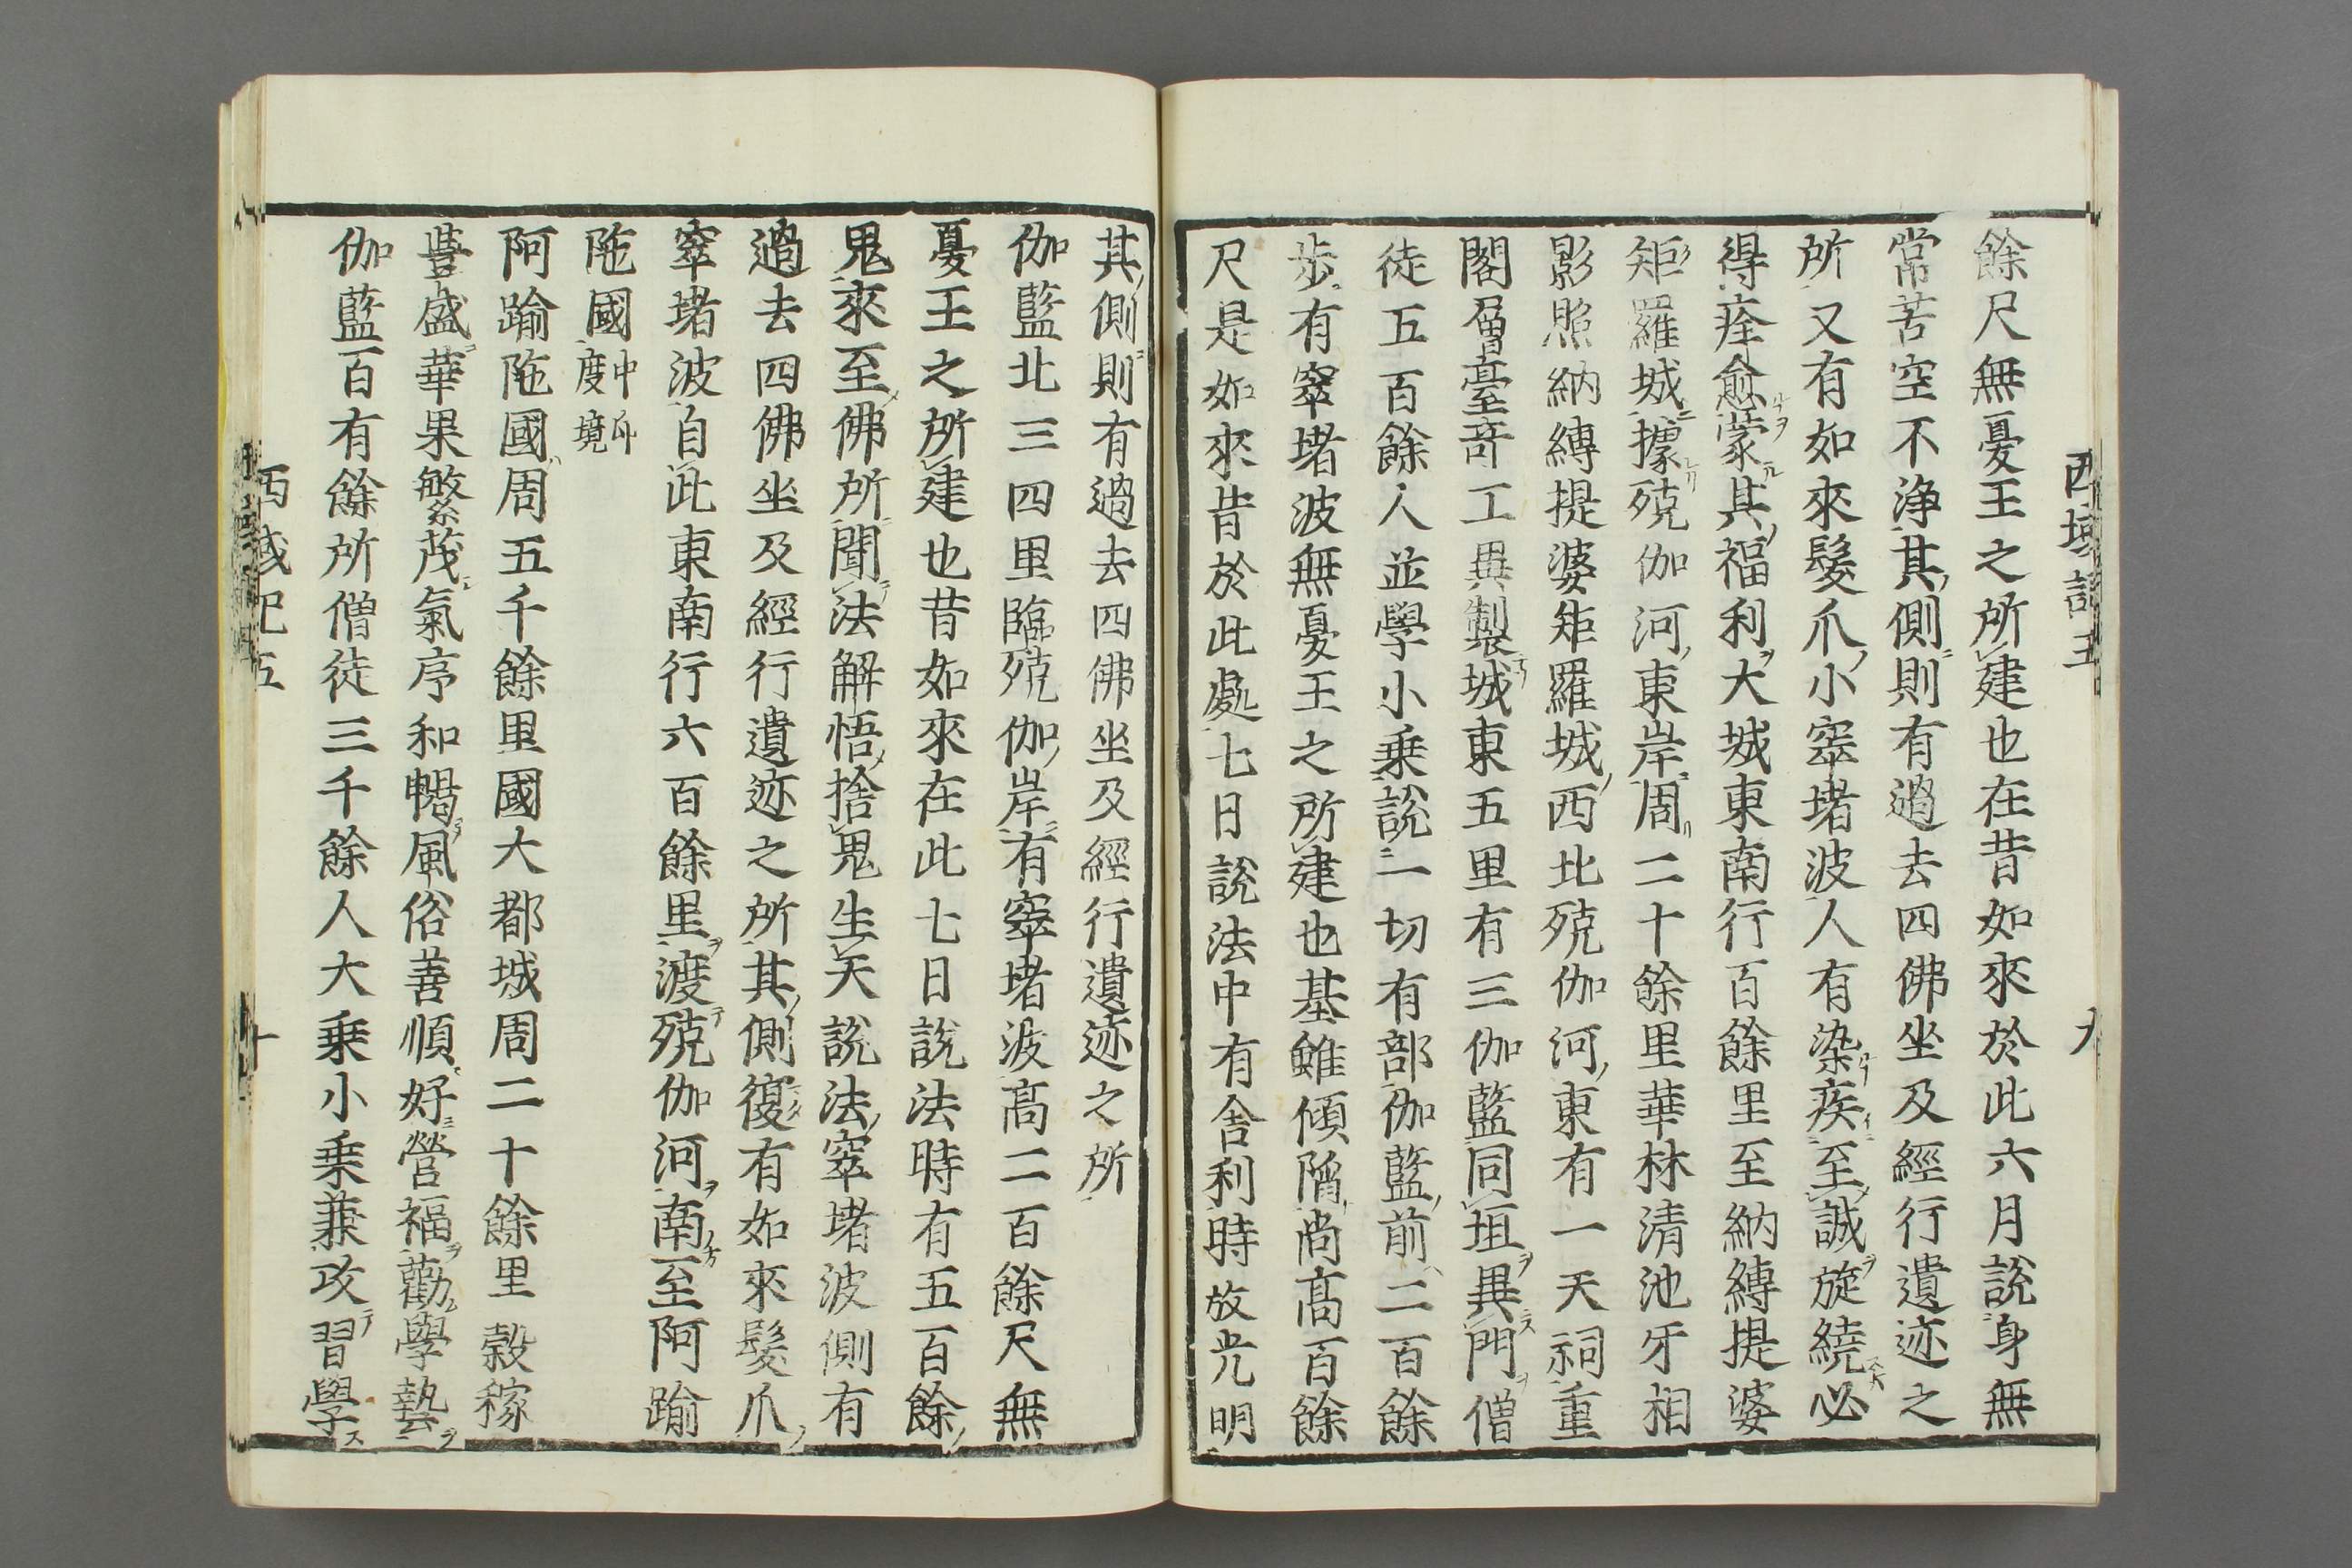 西域記五 九
餘尺無憂王之所建也在昔如來於此六月說身無
常苦空不淨其側則有過去四佛坐及經行遺迹之
所又有如來髮爪小窣堵波人有染疾至誠旋繞必
得痊愈蒙其福利大城東南行百餘里至納縛提婆
矩羅城據殑伽河東岸周二十餘里華林清池牙相
影照納縛提婆矩羅城西北殑伽河東有一天祠重
閣層臺奇工異製城東五里有三伽藍同垣異門僧
徒五百餘人並學小乘說一切有部伽藍前二百餘
步有窣堵波無憂王之所建也基雖傾隋尚高百餘
尺是如來昔於此處七日說法中有舍利時放光明
其側則有過去四佛坐及經行遺迹之所
伽藍北三四里臨殑伽岸有窣堵波高二百餘尺無
憂王之所建也昔如來在此七日說法時有五百餘
鬼來至佛所聞法解悟捨鬼生天說法窣堵波側有
過去四佛坐及經行遺迹之所其側復有如來髮爪
窣堵波自此東南行六百餘里渡殑伽河南至阿踰
陁國中印度境
阿踰陁國周五千餘里國大都城周二十餘里穀稼
豐盛華果繁茂氣序和暢風俗善順好營福勸學藝
伽藍百有餘所僧徒三千餘人大乘小乘兼攻習學
西域記五 十